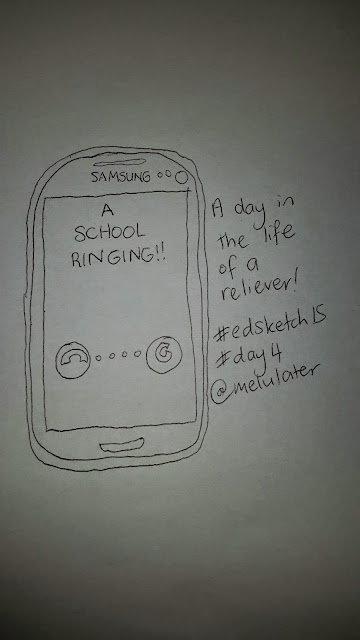 SAMSUNG
A
SCHOOL
RINGING!!
A day in
the life
of a
reliever!
#edsketch15
#day4
@melulater